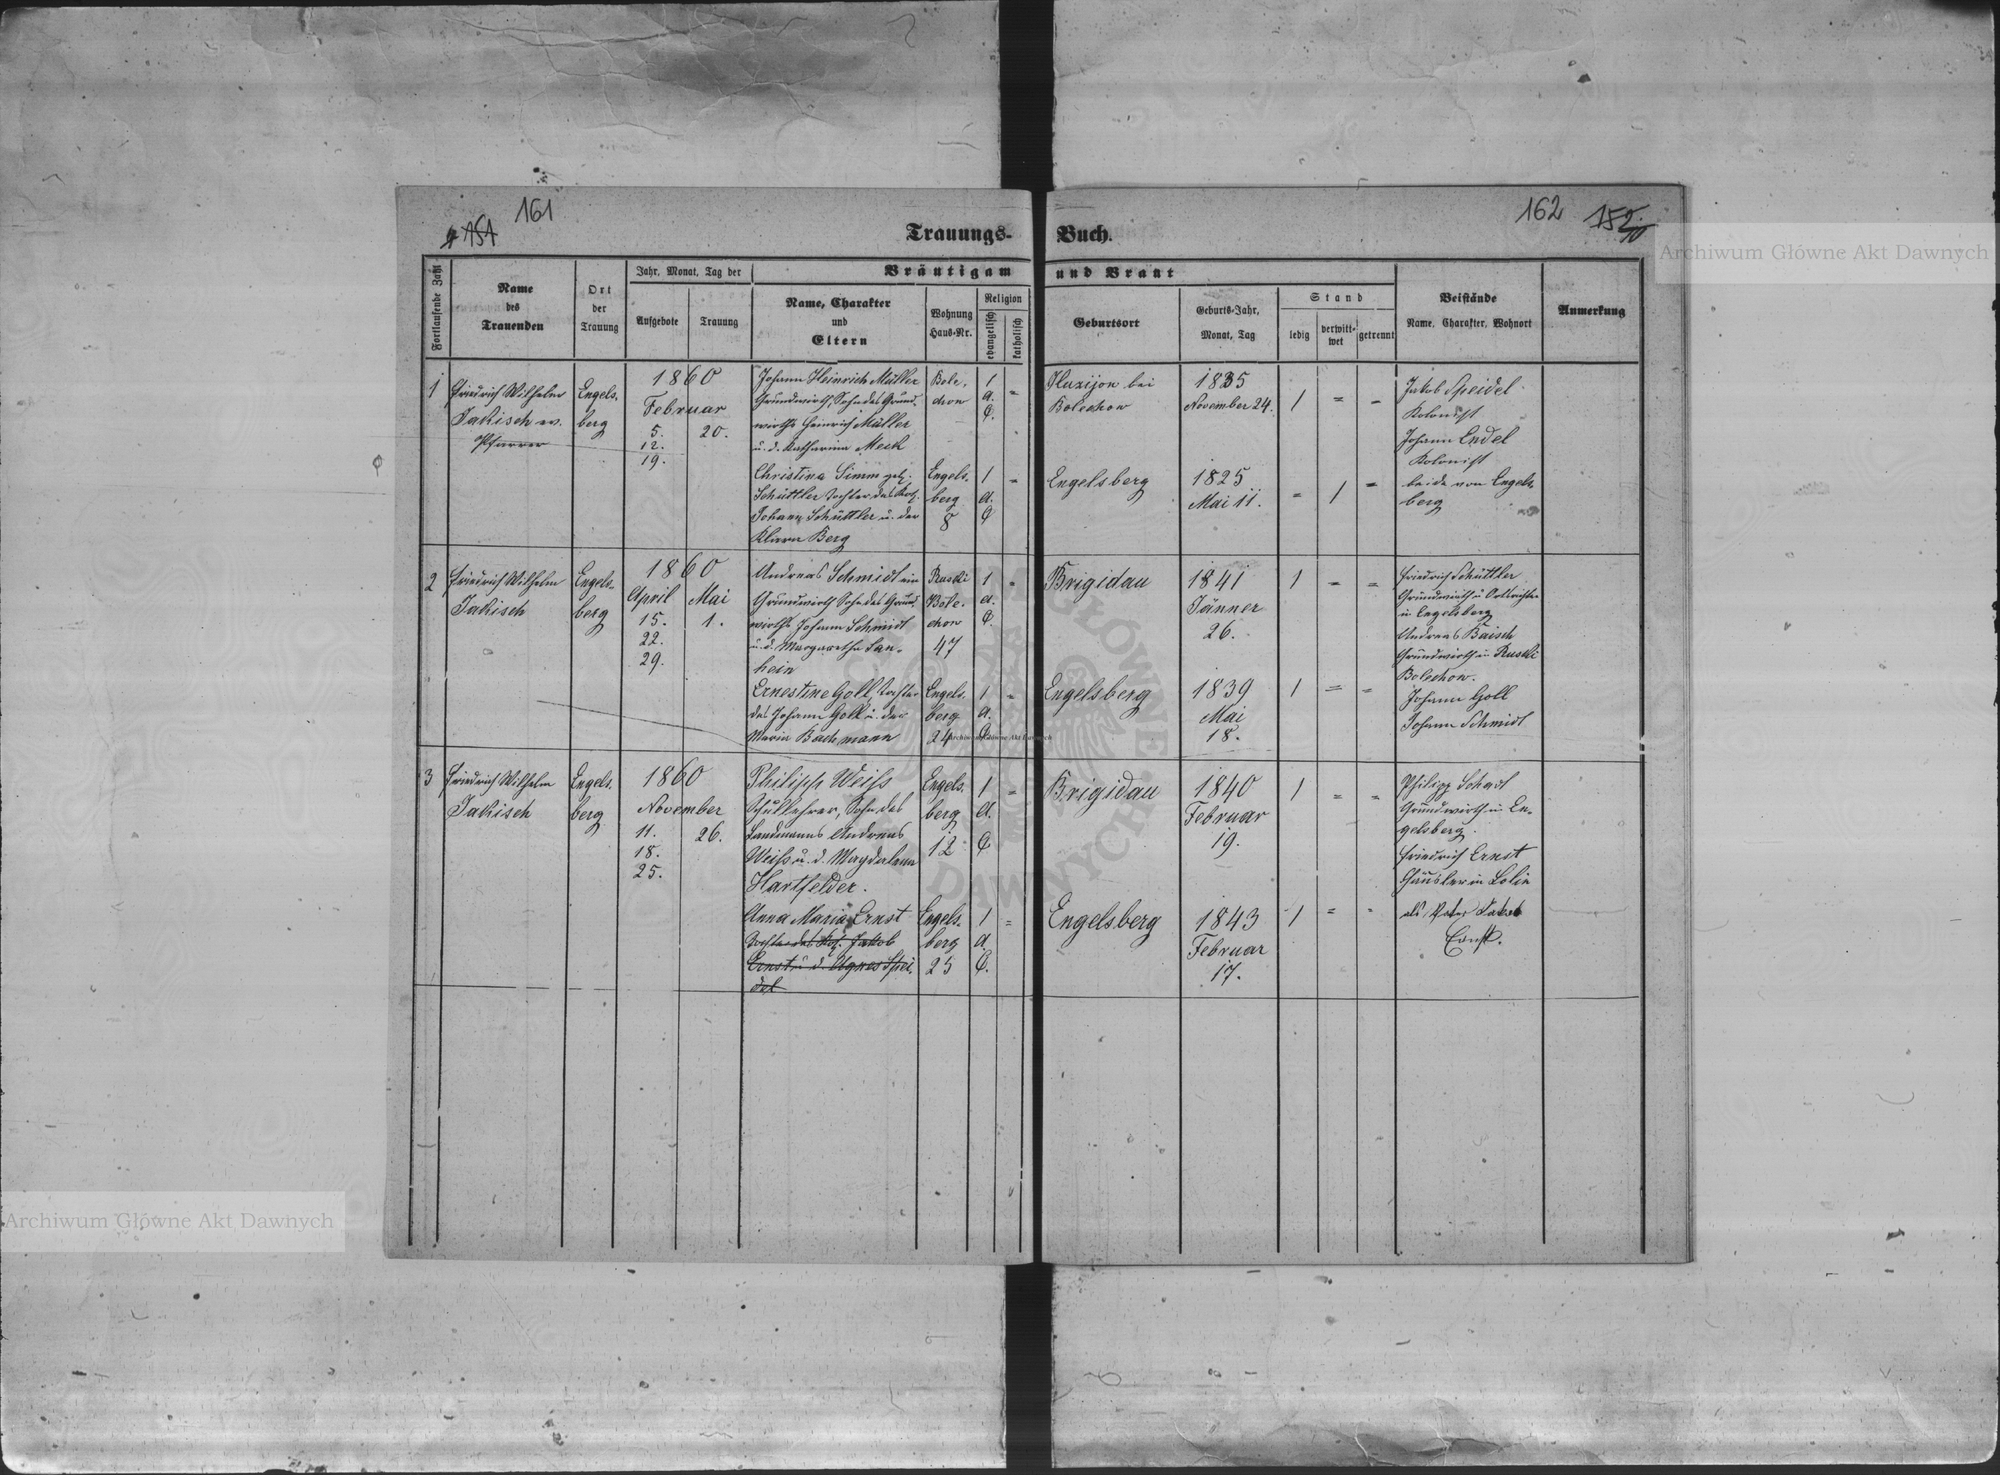 161
151
162
152
Trauungs-Buch.
Fortlaufende Zahl
Name
des
Trauenden
Ort
der
Trauung
Jahr, Monat, Tag der
Aufgebote
Trauung
Bräutigam und Braut
Name, Charakter
und
Eltern
Wohnung
Haus-Nr.
Religion
evangelisch
katholisch
Geburtsort
Geburts-Jahr,
Monat, Tag
Stand
ledig
verwitt-
wet
getrennt
Beistände
Name, Charakter, Wohnort
Anmerkung
1
Friedrich Wilhelm
Jakisch ev.
Pfarrer
Engels-
berg
1860
Februar
5.
12.
19.
20.
Johann Heinrich Müller
Grundwirth, Sohn des Grund-
wirths Heinrich Müller
u. d. Katharina Meck
Bole-
chow
1
A.
C.
=
Bolechow
bei
1835
November 24.
1
=
=
Jakob Speidel
Kolonist
Johann Endel
Kolonist
beide von Engels-
berg
Christina Simm geb.
Schüttler Tochter des Kol.
Johann Schüttler u. der
Klara Berg
Engels-
berg
8
1
A.
C
=
Engelsberg
1825
Mai 11.
=
1
=
2
Friedrich Wilhelm
Jakisch
Engels-
berg
1860
April
15.
22.
29.
Mai
1.
Andreas Schmidt ein
Grundwirth Sohn des Grund-
wirths Johann Schmidt
u. d. Margaretha Lan-
hein
Ruski
Bole-
chow
47
1
A.
C.
=
Brigidau
1841
Jänner
26.
1
=
=
Friedrich Schüttler
Grundwirth u. Ortsrichter
in Engelsberg
Andreas Baisch
Grundwirth in Ruski
Bolechow.
Johann Goll
Johann Schmidt
Ernestine Goll, Tochter
des Johann Goll u. der
Maria Bachmann
Engels-
berg
24
1
A.
C
=
Engelsberg
1839
Mai
18.
1
=
=
3
Friedrich Wilhelm
Jakisch
Engels-
berg
1860
November
11.
18.
25.
26.
Philipp Weiß
Schullehrer, Sohn des
Landmanns Andreas
Weiß u. d. Magdalena
Hartfelder.
Engels-
berg
12
1
A.
C
=
Brigidau
1840
Februar
19.
1
=
=
Philipp Schadt
Grundwirth in En-
gelsberg.
Friedrich Ernst
Häusler in Dolin
als Vater Jakob
Ernst.
Anna Maria Ernst
Tochter des Kol. Jakob
Ernst u. d. Agnes Spei-
del
Engels-
berg
25
1
A.
C.
=
Engelsberg
1843
Februar
17.
1
=
=
Archiwum Główne Akt Dawnych
Archiwum Główne Akt Dawnych
Archiwum Główne Akt Dawnych